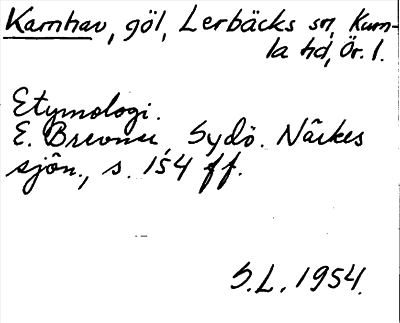 Karnhav, göl, Lerbäcks sn, Kum-
la hd, Ör. l.
Etymologi.
E. Brevner, Sydö. Närkes
sjön., s. 154 ff.
S.L. 1954.